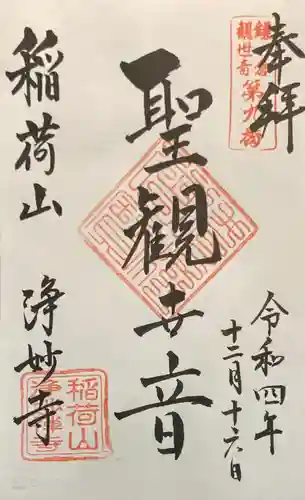 奉拝
鎌倉
観世音
第九番
聖観世音
令和四年
十二月十六日
稲荷山
浄妙寺
稲荷山